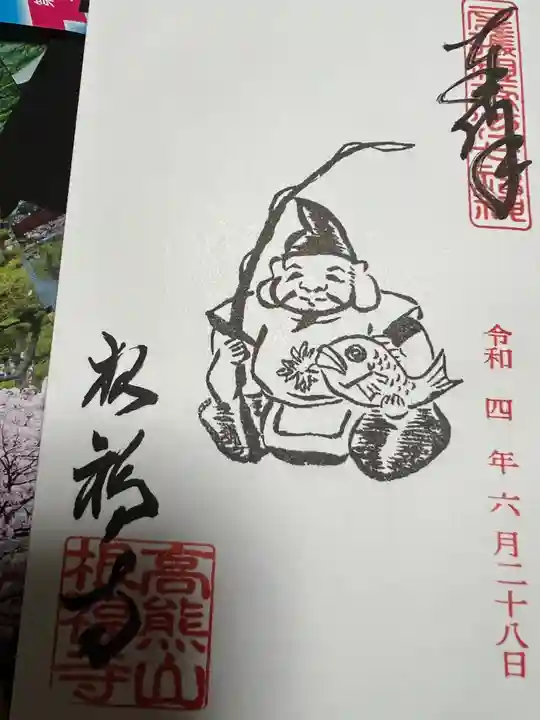 奉拝
令和四年六月二十八日
根福寺
高熊山
根福寺